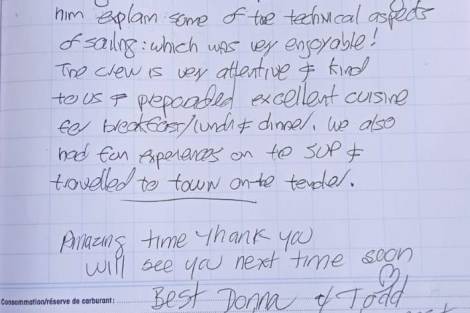 him explain some of the technical aspects
of sailing: which was very enjoyable!
The crew is very attentive & kind
to us & prepaded excellent cuisine
for breakfast/lunch & dinner. We also
had fun experiences on to SUP &
travelled to town on the tender.
Amazing time thank you
will see you next time soon
Consommation/réserve de carburant:
Best Donna & Todd